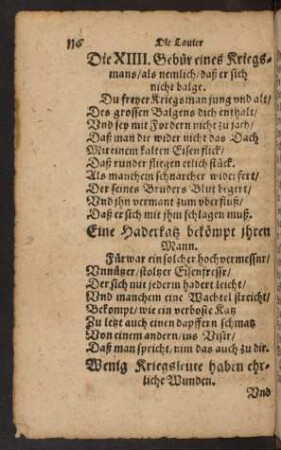 116 Die Lauter
Die XIIII. Gebür eines Kriegs-
mans/als nemlich/daß er sich
nicht balge.
Du freyer Kriegsman jung vnd alt/
Des grossen Balgens dich enthalt/
Vnd sey mit Fordern nicht zu jach/
Daß man dir wider nicht das Dach
Mit einem kalten Eisen flick/
Daß runder fliegen etlich stück.
Als manchem schnarcher widerfert/
Der seines Bruders Blut begert/
Vnd jhn vermant zum vberfluß/
Daß er sich mit jhm schlagen muß.
Eine Haderkatz bekömpt jhren
Mann.
Fürwar ein solcher hochvermessnr/
Vnnützer/stoltzer Eisenfressr/
Der sich mit jederm hadert leicht/
Vnd manchem eine Wachtel streicht/
Bekompt/wie ein verboste Katz
Zu letzt auch einen dapffern schmatz
Von einem andern/ins Visir/
Daß man spricht/nim das auch zu dir.
Wenig Kriegsleute haben ehr-
liche Wunden.
Vnd